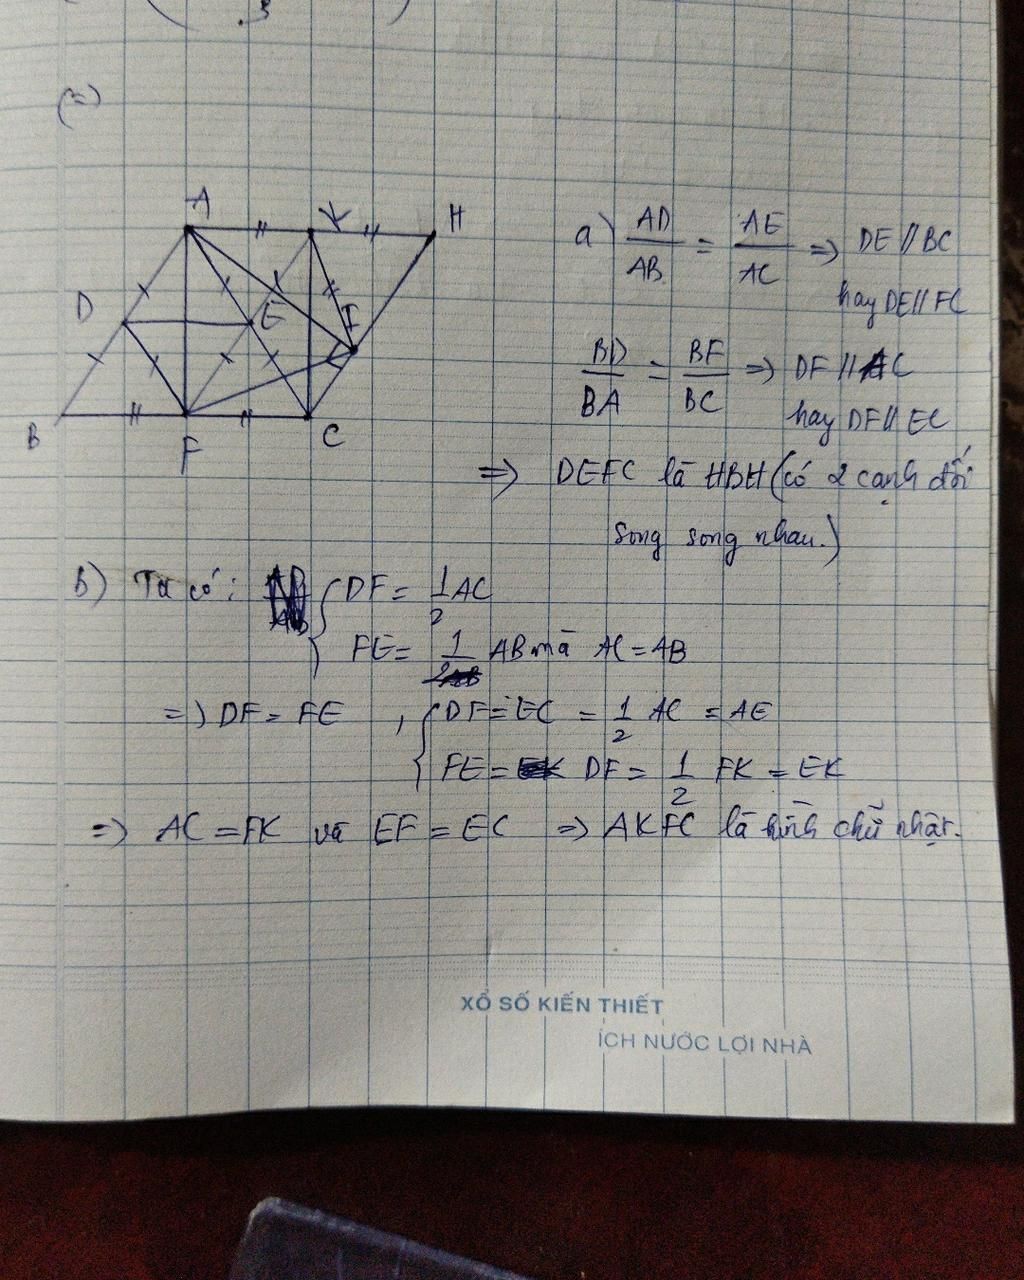 .3
(=)
A K H
D E I
B F C
a) AD/AB = AE/AC => DE // BC
hay DE // FC
BD/BA = BF/BC => DF // AC
hay DF // EC
=> DEFC là HBH (có 2 cạnh đối
song song nhau.)
b) Ta có: { DF = 1/2 AC
FE = 1/2 AB mà AC = AB
=> DF = FE , { DF = EC = 1/2 AC = AE
FE = DF = 1/2 FK = EK
=> AC = FK và EF = EC => AKFC là hình chữ nhật.
XỔ SỐ KIẾN THIẾT
ÍCH NƯỚC LỢI NHÀ